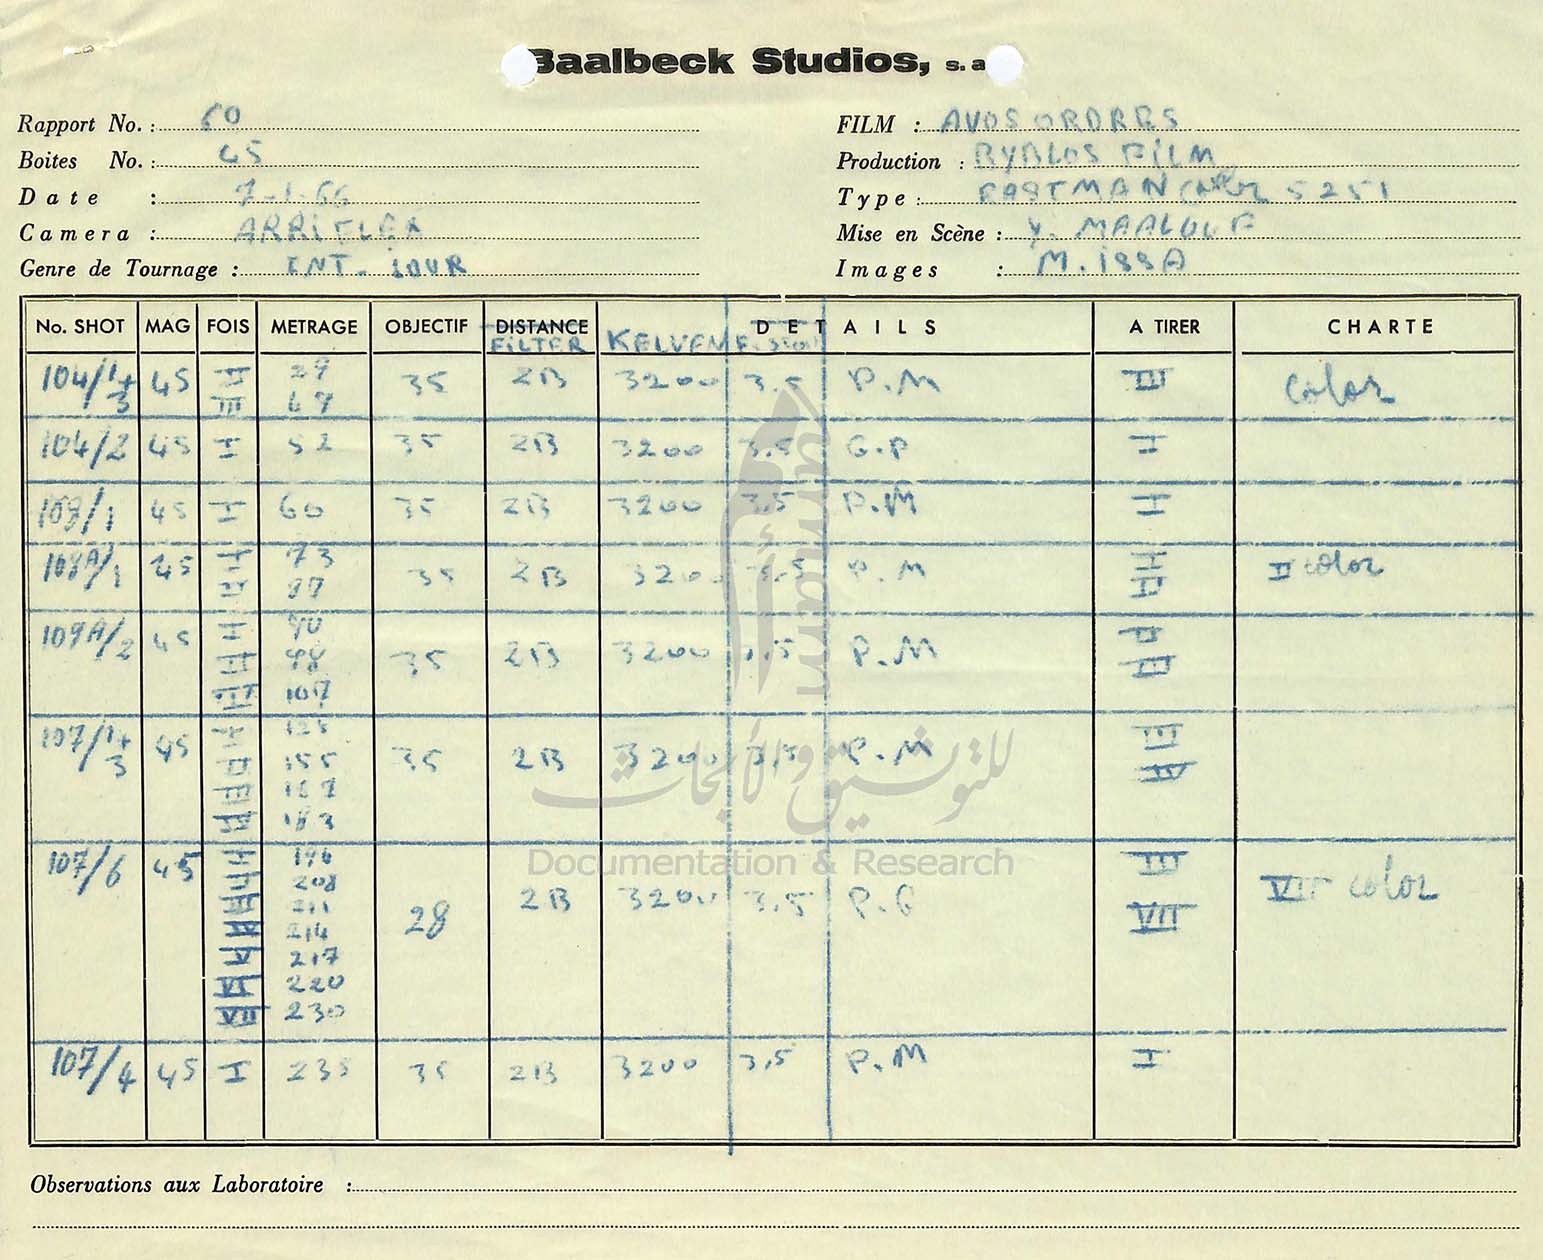 Baalbeck Studios, s. a
Rapport No. : 60
Boites No. : 45
Date : 7-1-66
Camera : ARRIFLEX
Genre de Tournage : INT. JOUR
FILM : AVOS ORDRES
Production : BYBLOS FILM
Type : EASTMAN Color 5251
Mise en Scène : Y. MAALOUF
Images : M. ISSA
No. SHOT MAG FOIS METRAGE OBJECTIF DISTANCE DETAILS A TIRER CHARTE
FILTER KELVEN
104/1+3 45 II 29 35 2B 3200 3.5 P.M III color
III 67
104/2 45 I 52 35 2B 3200 3.5 G.P I
108/1 45 I 60 35 2B 3200 3.5 P.M I
108A/1 45 I 73 35 2B 3200 3.5 P.M I II color
II 87 II
109A/2 45 I 90 35 2B 3200 3.5 P.M II
II 98 III
III 107
107/1+3 45 I 125 35 2B 3200 3.5 P.M III
II 155 IV
III 167
IV 183
107/6 45 I 196 28 2B 3200 3.5 P.G III VII color
II 208 VII
III 211
IV 214
V 217
VI 220
VII 230
107/4 45 I 235 35 2B 3200 3.5 P.M I
Observations aux Laboratoire :
أمم
umam
للتوثيق والأبحاث
Documentation & Research